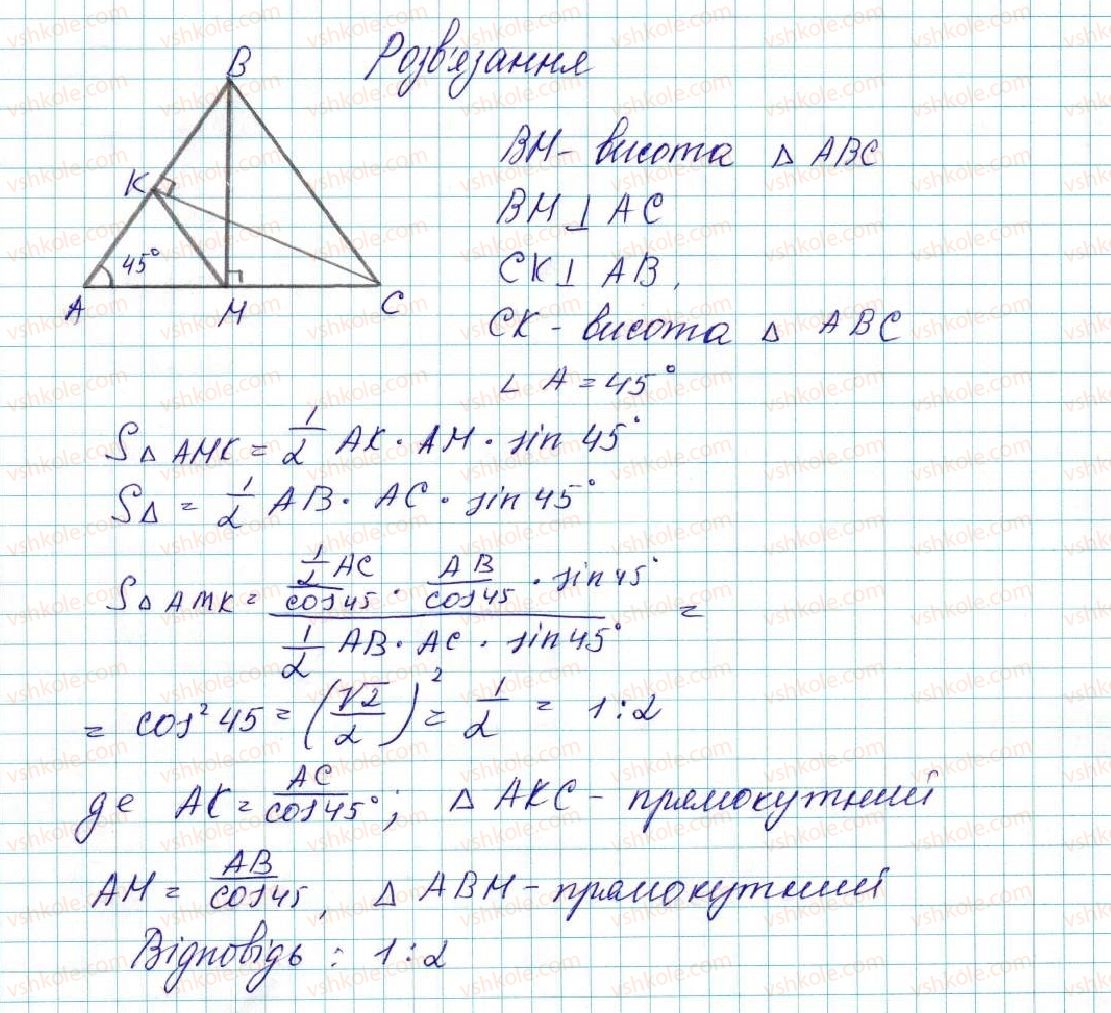 Розв'язання
B
K
45°
A
M
C
BM - висота △ ABC
BM ⊥ AC
CK ⊥ AB,
CK - висота △ ABC
∠ A = 45°
S△ AMK = 1/2 AK · AM · sin 45°
S△ = 1/2 AB · AC · sin 45°
S△ AMK = (1/2 AC/cos 45 · AB/cos 45 · sin 45°)/(1/2 AB · AC · sin 45°) =
= cos² 45 = (√2/2)² = 1/2 = 1:2
де AK = AC/cos 45°; △ AKC - прямокутний
AM = AB/cos 45, △ ABM - прямокутний
Відповідь : 1:2